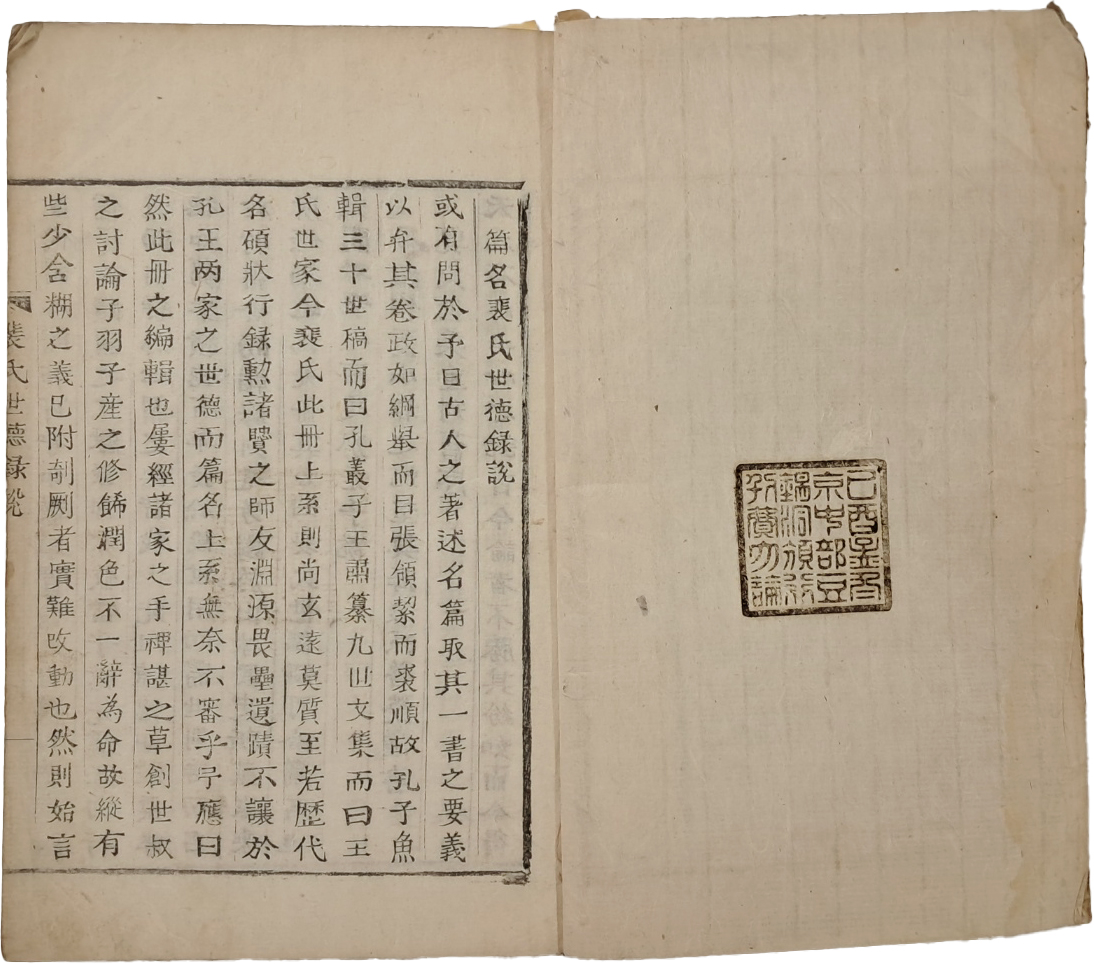 己酉孟冬
京中部豆
錫洞頒
勿論
篇名裴氏世德録說
或有問於予曰古人之著述名篇取其一書之要義
以弁其卷政如綱擧而目張領絜而裘順故孔子魚
輯三十世稿而曰孔叢子王肅纂九世文集而曰王
氏世家今裴氏此冊上系則尚玄遠莫質至若歷代
名碩狀行録勲諸賢之師友淵源畏壘遺蹟不讓於
孔王两家之世德而篇名上系無奈不審乎予應曰
然此冊之編輯也屢經諸家之手裨諶之草創世叔
之討論子羽子産之修餙潤色不一辭為命故縱有
些少含糊之義已附剞劂者實難攺動也然則始言
裴氏世德录說